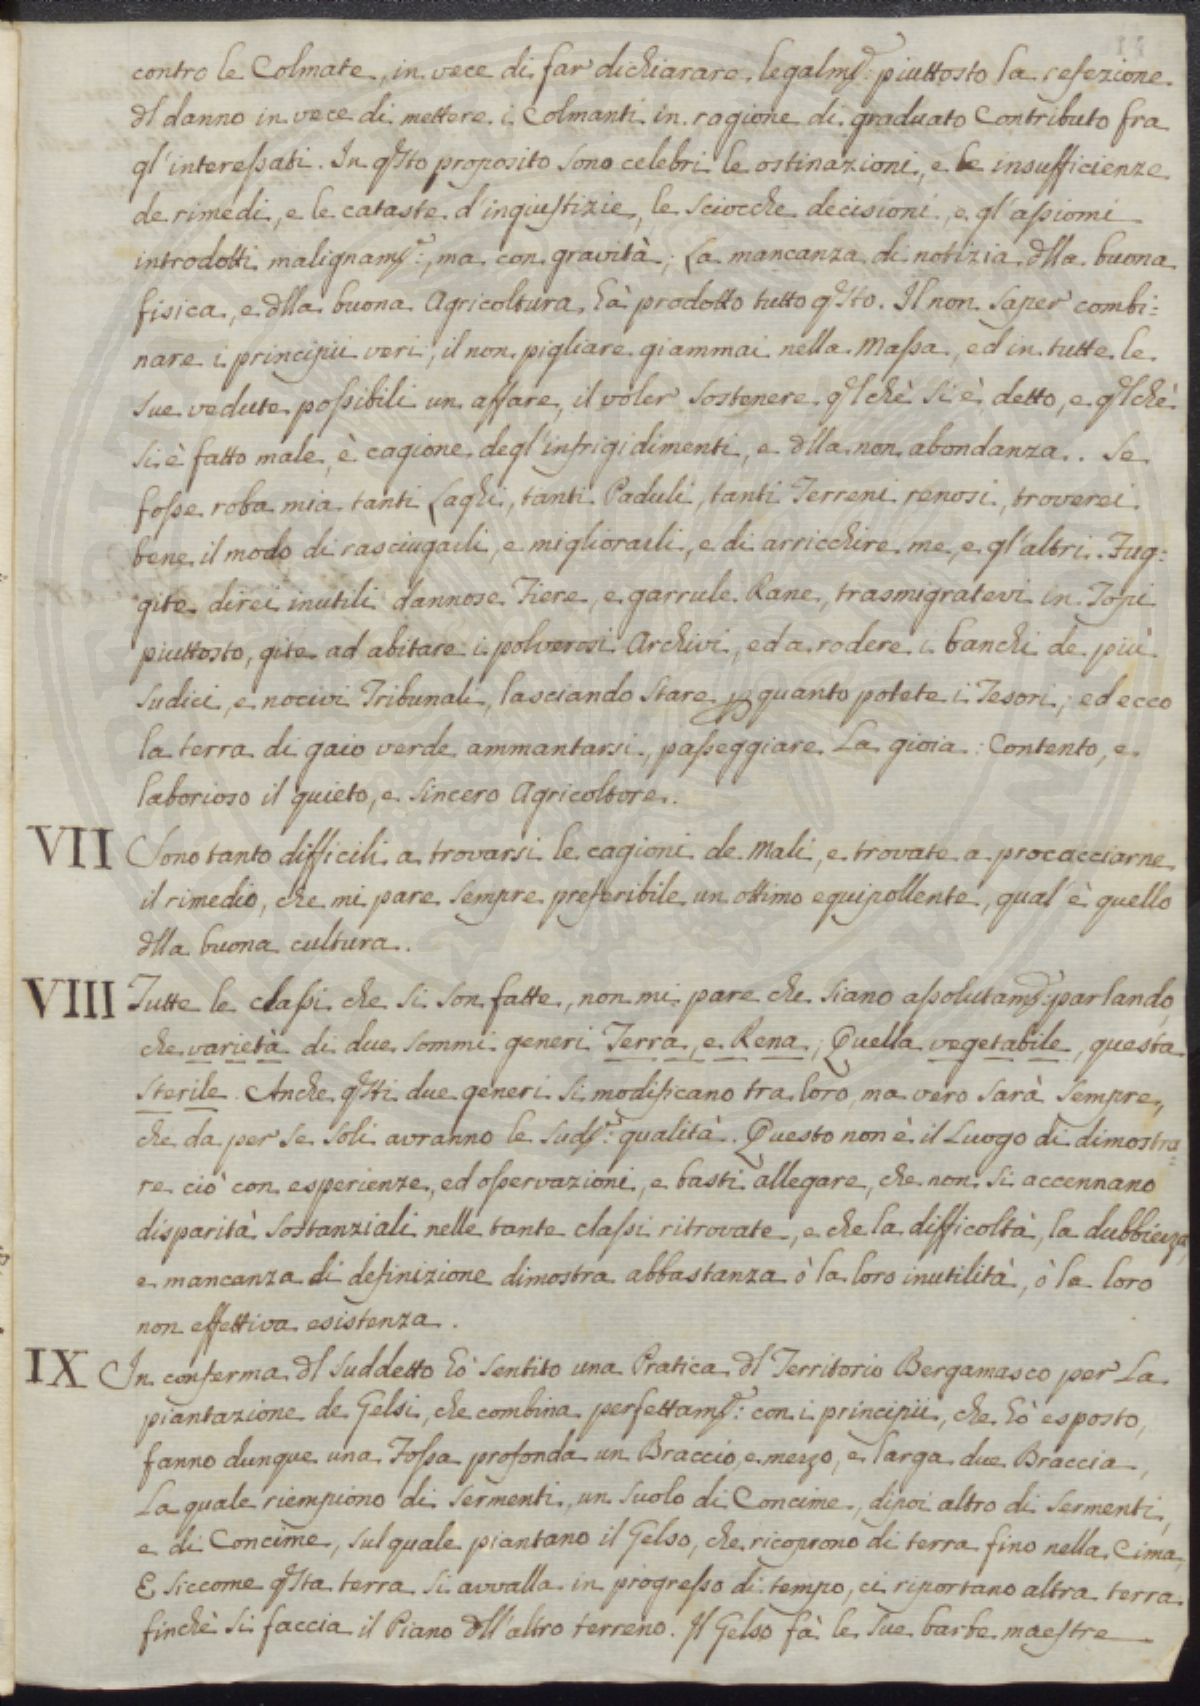 contro le Colmate, in vece di far' dichiarare legalm.e: piuttosto la refezione
dl danno in vece di mettere i Colmanti in ragione di graduato Contributo fra
gl'interessati. In q'sto proposito sono celebri le ostinazioni, e le insufficienze
de rimedi, e le cataste d'ingiustizie, le sciocche decisioni, e gl'assiomi
introdotti malignam.e:, ma con gravità; La mancanza di notizia dlla buona
fisica, e dlla buona Agricoltura hà prodotto tutto q'sto. Il non saper' combi:
nare i principii veri, il non pigliare giammai nella Massa, ed in tutte le
sue vedute possibili un affare, il voler' sostenere q'l chè si è detto, e q'l chè
si è fatto male, è cagione degl'infrigidimenti, e dlla non abondanza.. Se
fosse roba mia tanti Laghi, tanti Paduli, tanti Terreni renosi, troverei
bene il modo di rasciugarli, e migliorarli, e di arricchire me, e gl'altri. Fug:
gite direi inutili dannose Fiere, e garrule Rane, trasmigratevi in Topi
piuttosto, gite ad abitare i polverosi Archivi, ed a rodere i banchi de più
sudici, e nocivi Tribunali, lasciando stare p quanto potete i Tesori; ed ecco
la terra di gaio verde ammantarsi, passeggiare La gioia: Contento, e
laborioso il quieto, e sincero Agricoltore.
VII Sono tanto difficili a trovarsi le cagioni de Mali, e trovate a procacciarne
il rimedio, che mi pare sempre preferibile un ottimo equipollente, qual'è quello
dlla buona cultura.
VIII Tutte le classi che si son fatte, non mi pare che siano assolutam.e: parlando,
che varietà di due sommi generi Terra, e Rena; Quella vegetabile, questa
sterile. Anche q'sti due generi si modificano tra loro, ma vero sarà sempre,
che da per se soli avranno le sud.e: qualità. Questo non è il Luogo di dimostra=
re ciò con esperienze, ed osservazioni, e basti allegare, che non si accennano
disparità sostanziali nelle tante classi ritrovate, e che la difficoltà, la dubbiezza,
e mancanza di definizione dimostra abbastanza ò la loro inutilità, ò la loro
non effettiva esistenza.
IX In conferma dl suddetto hò sentito una Pratica dl Territorio Bergamasco per La
piantazione de Gelsi, che combina perfettam.e: con i principii, che hò esposto,
fanno dunque una Fossa profonda un Braccio, e mezzo, e larga due Braccia,
La quale riempiono di sermenti, un suolo di Concime, dipoi altro di sermenti,
e di Concime, sul quale piantano il Gelso, che ricoprono di terra fino nella Cima,
E siccome q'sta terra si avvalla in progresso di tempo, ci riportano altra terra
finchè si faccia il Piano dll'altro terreno. Il Gelso fà le sue barbe maestre